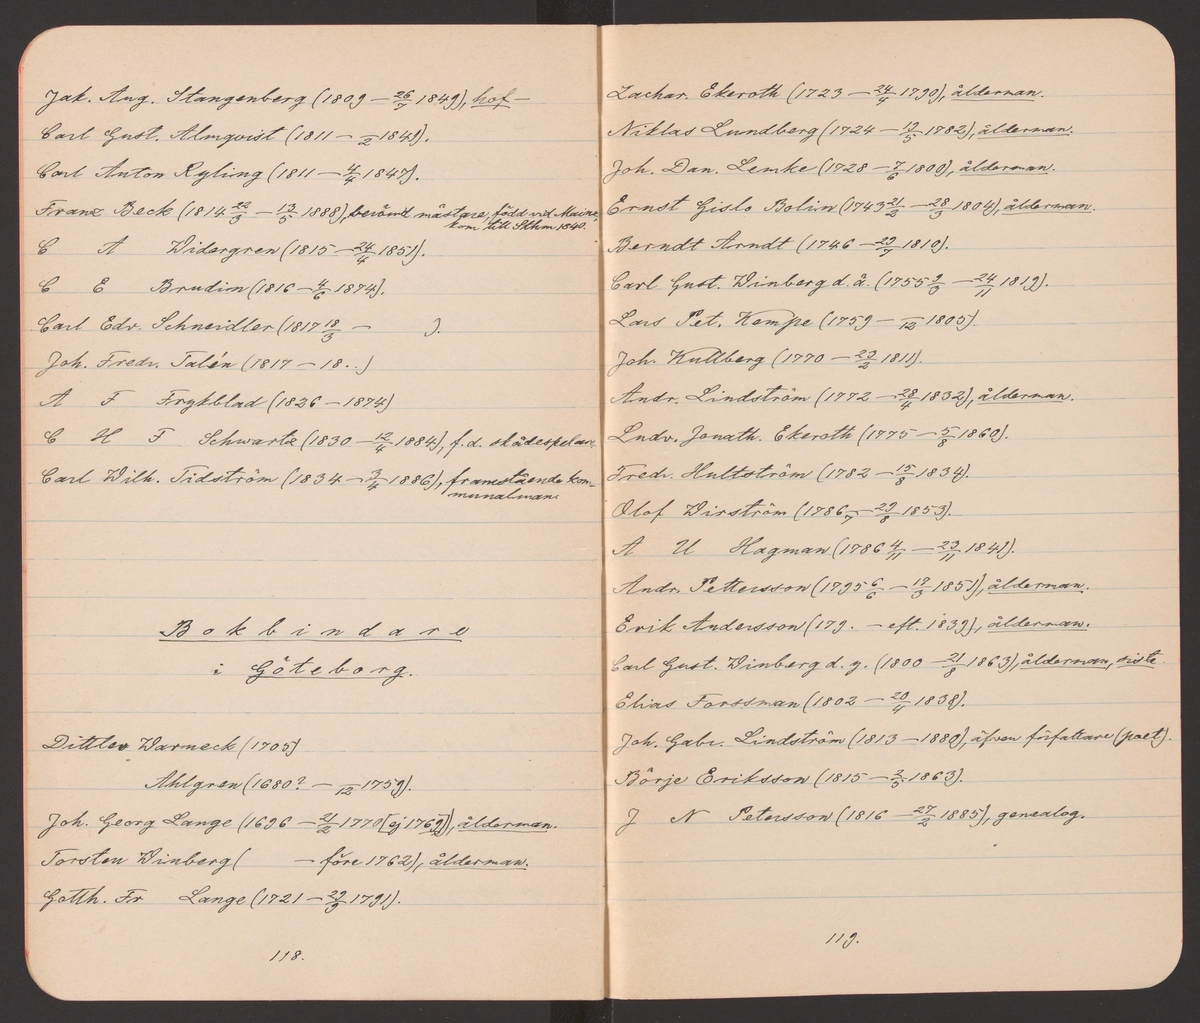 Jak. Aug. Stangenberg (1809 — 26/7 1849), hof—
Carl Gust. Almqvist (1811 — /2 1849).
Carl Anton Ryling (1811 — 4/4 1847).
Franz Beck (1814 22/3 — 13/5 1888), berömd mästare, född vid Mainz,
kom till Sthm 1840.
C A Widergren (1815 — 24/4 1851).
C E Brudin (1816 — 4/6 1874).
Carl Edv. Schneidler (1817 18/3 — ).
Joh. Fredr. Talén (1817 — 18..)
A F Frykblad (1826 — 1874)
C H F Schwartz (1830 — 12/4 1884), f.d. skådespelare
Carl Wilh. Tidström (1834 — 3/4 1886), framstående kom-
munalman.
Bokbindare
i Göteborg.
Dittlev Warmeck (1705)
Ahlgren (1680? — /12 1759).
Joh. Georg Lange (1696 — 21/2 1770 [ej 1769]), ålderman.
Torsten Winberg ( — före 1762), ålderman.
Gotth. Fr Lange (1721 — 29/9 1791).
118.
Zachar. Ekeroth (1723 — 24/4 1790), ålderman.
Niklas Lundberg (1724 — 19/5 1782), ålderman.
Joh. Dan. Lemke (1728 — 7/6 1800), ålderman.
Ernst Gislo Bolin (1743 21/2 — 28/3 1804), ålderman.
Berndt Arndt (1746 — 29/7 1810).
Carl Gust. Winberg d.ä. (1755 9/9 — 24/11 1819).
Lars Pet. Kempe (1759 — /12 1805).
Joh. Kullberg (1770 — 29/2 1811).
Andr. Lindström (1772 — 28/4 1832), ålderman.
Ludv. Jonath. Ekeroth (1775 — 5/8 1860).
Fredr. Hultström (1782 — 15/8 1834).
Olof Wirström (1786 /7 — 29/8 1853).
A U Hagman (1786 4/11 — 23/11 1841).
Andr. Pettersson (1795 6/6 — 17/9 1851), ålderman.
Erik Andersson (179. — eft. 1839), ålderman.
Carl Gust. Winberg d. y. (1800 — 21/8 1863), ålderman, siste.
Elias Forssman (1802 — 20/4 1838).
Joh. Gabr. Lindström (1813 — 1880), äfven författare (poet).
Börje Eriksson (1815 — 2/5 1863).
J N Petersson (1816 — 27/2 1885), genealog.
119.